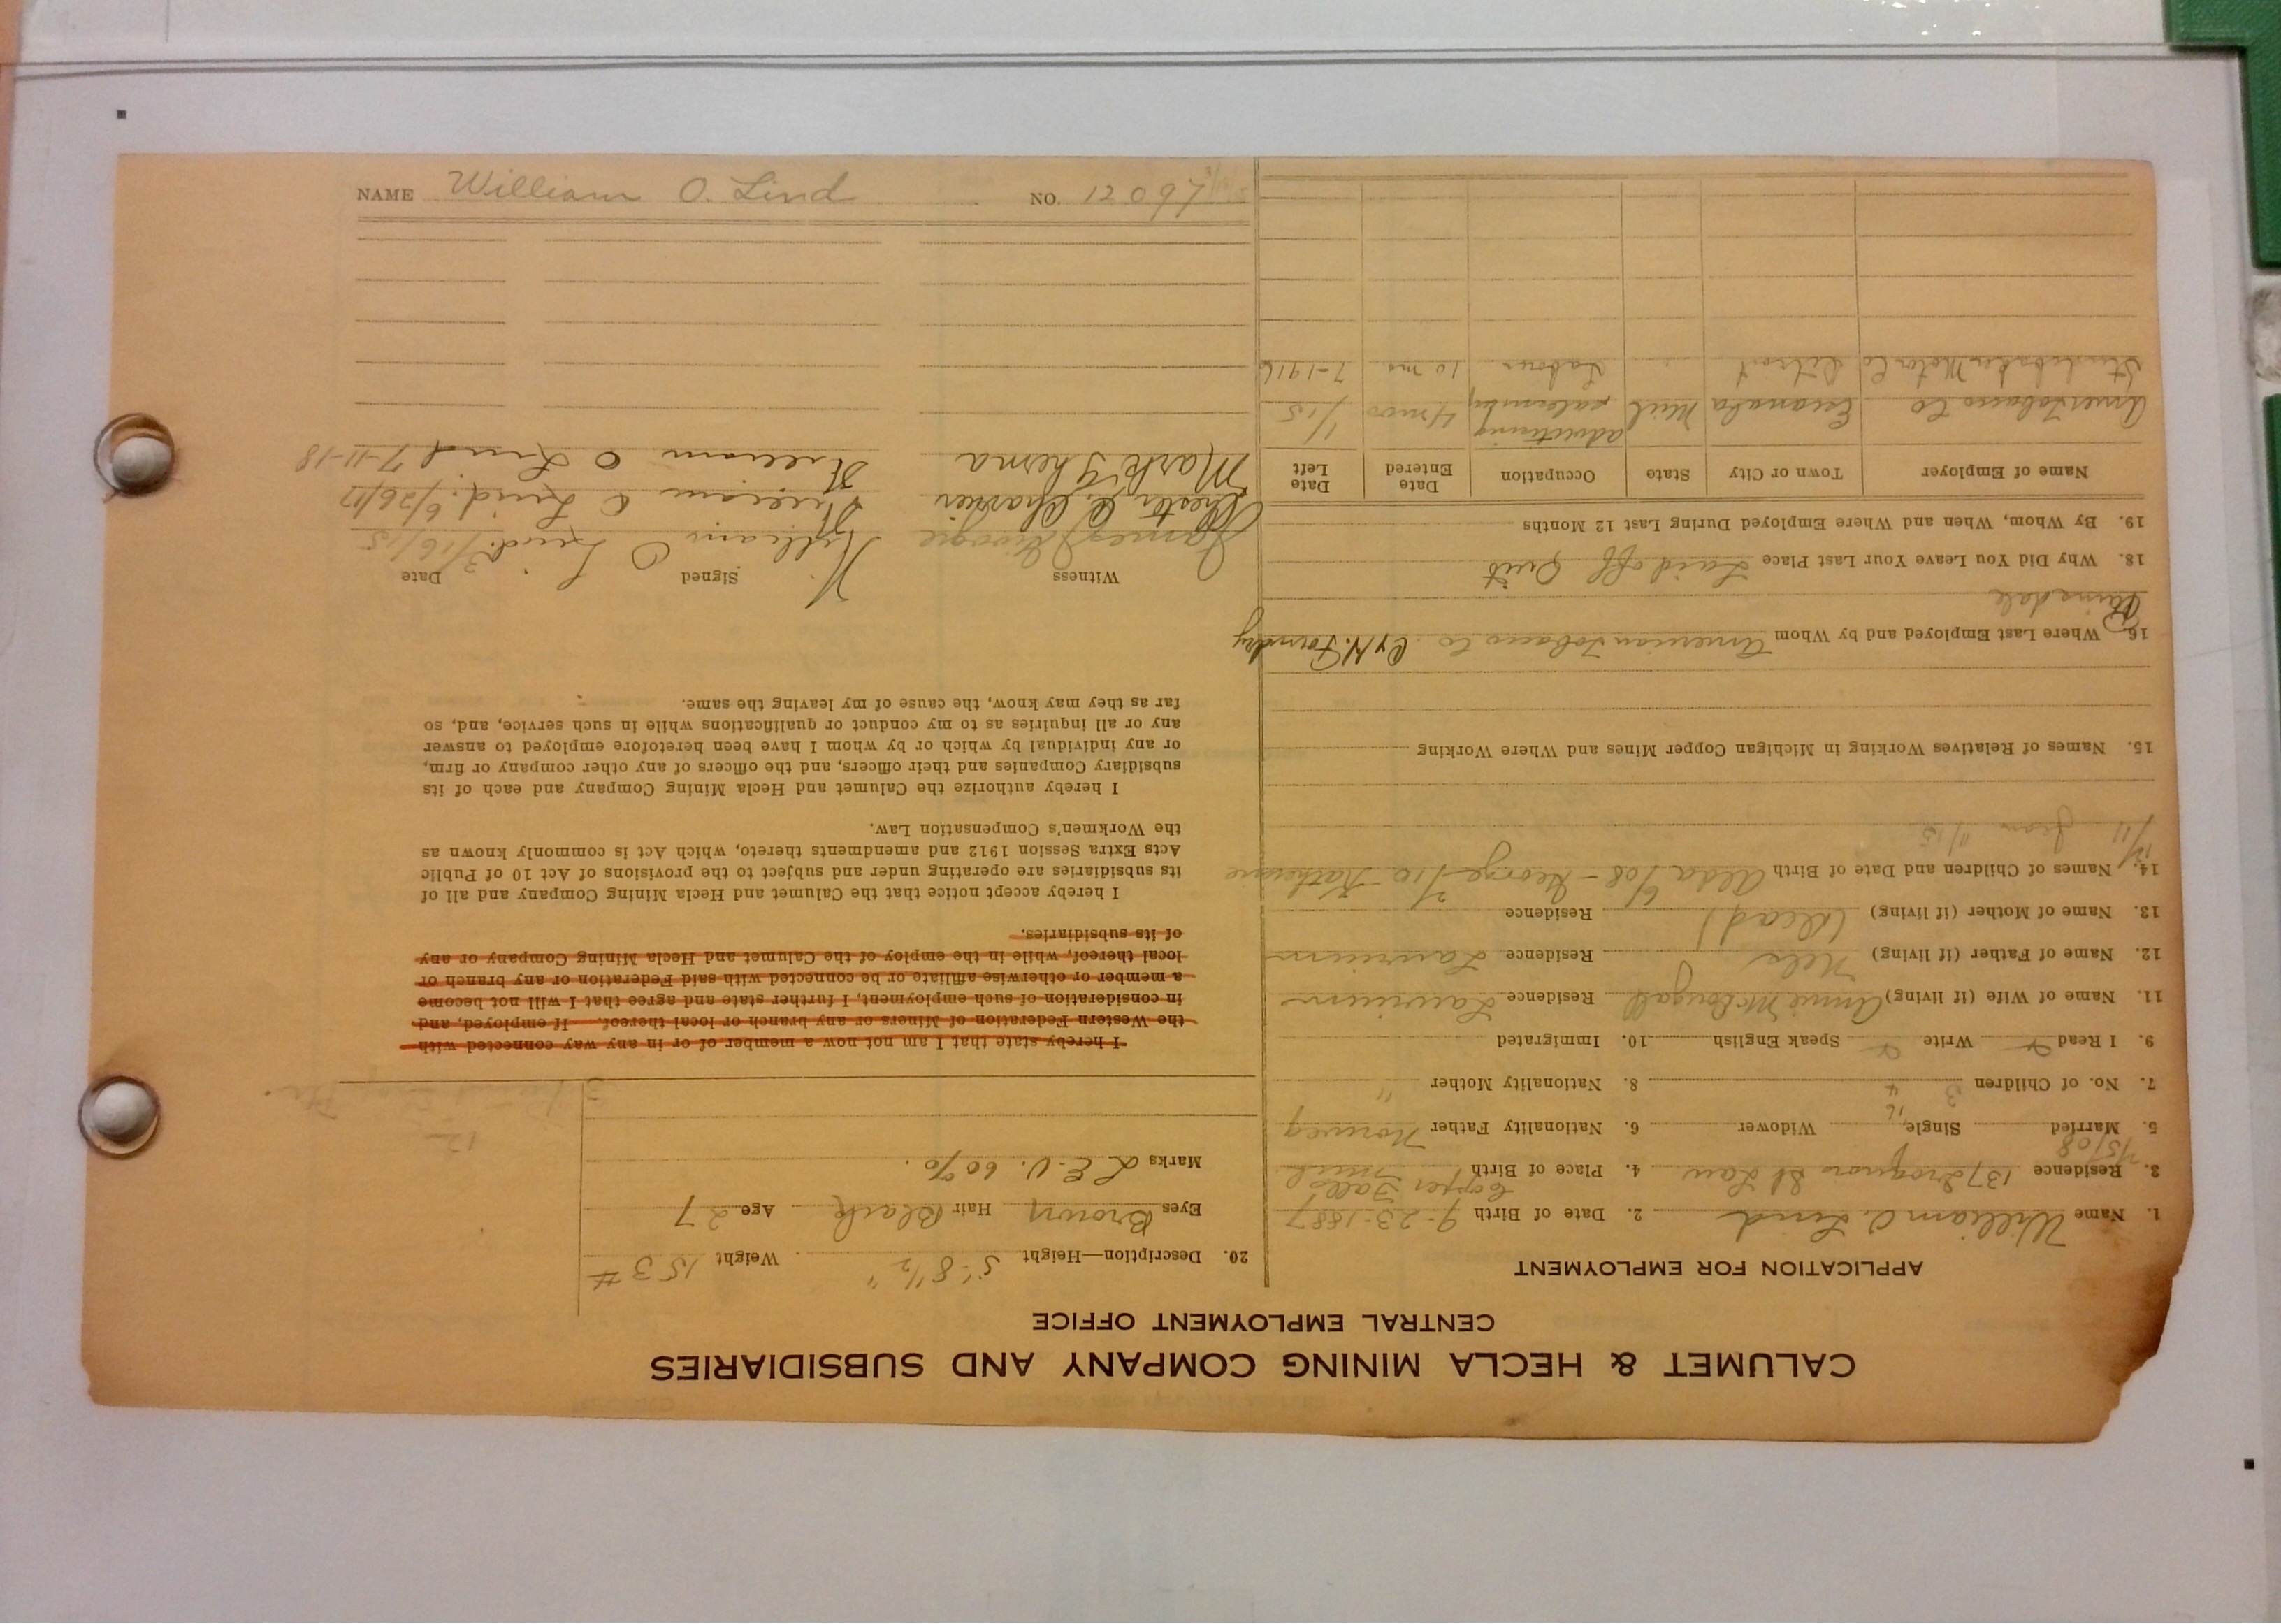 CALUMET & HECLA MINING COMPANY AND SUBSIDIARIES
CENTRAL EMPLOYMENT OFFICE
APPLICATION FOR EMPLOYMENT
1. Name William O. Lind 2. Date of Birth 9-23-1887
3. Residence 137 Iroquois St Lau 4. Place of Birth Copper Falls Mich
5. Married 4/5/08 Single Widower 6. Nationality Father Norweg
7. No. of Children 3 4 8. Nationality Mother "
9. I Read Write Speak English 10. Immigrated
11. Name of Wife (if living) Annie McDougall Residence Laurium
12. Name of Father (if living) Nels Residence Laurium
13. Name of Mother (if living) (Dead) Residence
14. Names of Children and Date of Birth Alda 6/08 - George 2/10 Katherine
12/11 Jean 11/15
15. Names of Relatives Working in Michigan Copper Mines and Where Working
16. Where Last Employed and by Whom American Tobacco Co. C&H. Foundry
18. Why Did You Leave Your Last Place Laid off Quit
19. By Whom, When and Where Employed During Last 12 Months
Name of Employer Town or City State Occupation Date Entered Date Left
Amer Tobacco Co Escanaba Mich advertising salesman 4 mos 1/15
Studebaker Motor Co Detroit " Labour 10 mos 7-1916
20. Description—Height 5'-8 1/2" Weight 153 #
Eyes Brown Hair Black Age 27
Marks L.E.V. 60%.
12
I hereby state that I am not now a member of or in any way connected with
the Western Federation of Miners or any branch or local thereof. If employed, and
in consideration of such employment, I further state and agree that I will not become
a member or otherwise affiliate or be connected with said Federation or any branch or
local thereof, while in the employ of the Calumet and Hecla Mining Company or any
of its subsidiaries.
I hereby accept notice that the Calumet and Hecla Mining Company and all of
its subsidiaries are operating under and subject to the provisions of Act 10 of Public
Acts Extra Session 1912 and amendments thereto, which Act is commonly known as
the Workmen's Compensation Law.
I hereby authorize the Calumet and Hecla Mining Company and each of its
subsidiary Companies and their officers, and the officers of any other company or firm,
or any individual by which or by whom I have been heretofore employed to answer
any or all inquiries as to my conduct or qualifications while in such service, and, so
far as they may know, the cause of my leaving the same.
Witness Signed Date
James William O Lind. 3/16/15
Chester William O Lind. 6/26/17
Mark William O Lind 7-11-18
NAME William O. Lind NO. 12097